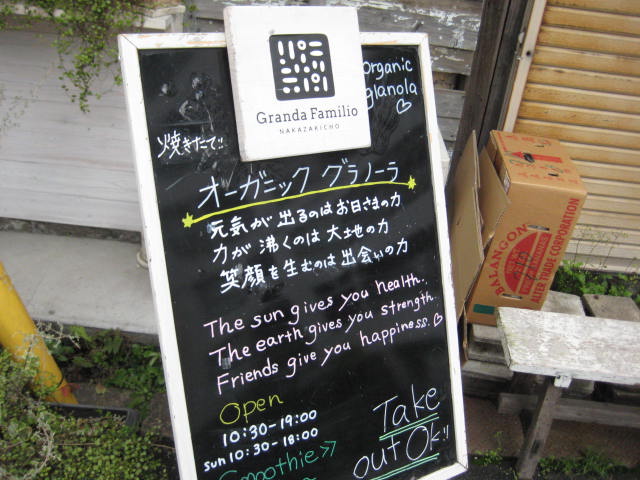 Granda Familio
NAKAZAKICHO
organic
glanola
焼きたて!!
オーガニック グラノーラ
元気が出るのはお日さまの力
力が沸くのは大地の力
笑顔を生むのは出会いの力
The sun gives you health.
The earth gives you strength.
Friends give you happiness.
Open
10:30-19:00
sun 10:30-18:00
Smoothie>>
Take
out Ok!!
BALANGON
ALTER TRADE CORPORATION